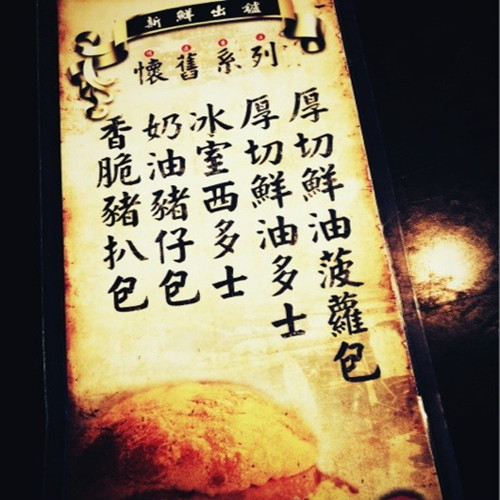 新鮮出爐
懷舊系列
厚切鮮油菠蘿包
厚切鮮油多士
冰室西多士
奶油豬仔包
香脆豬扒包